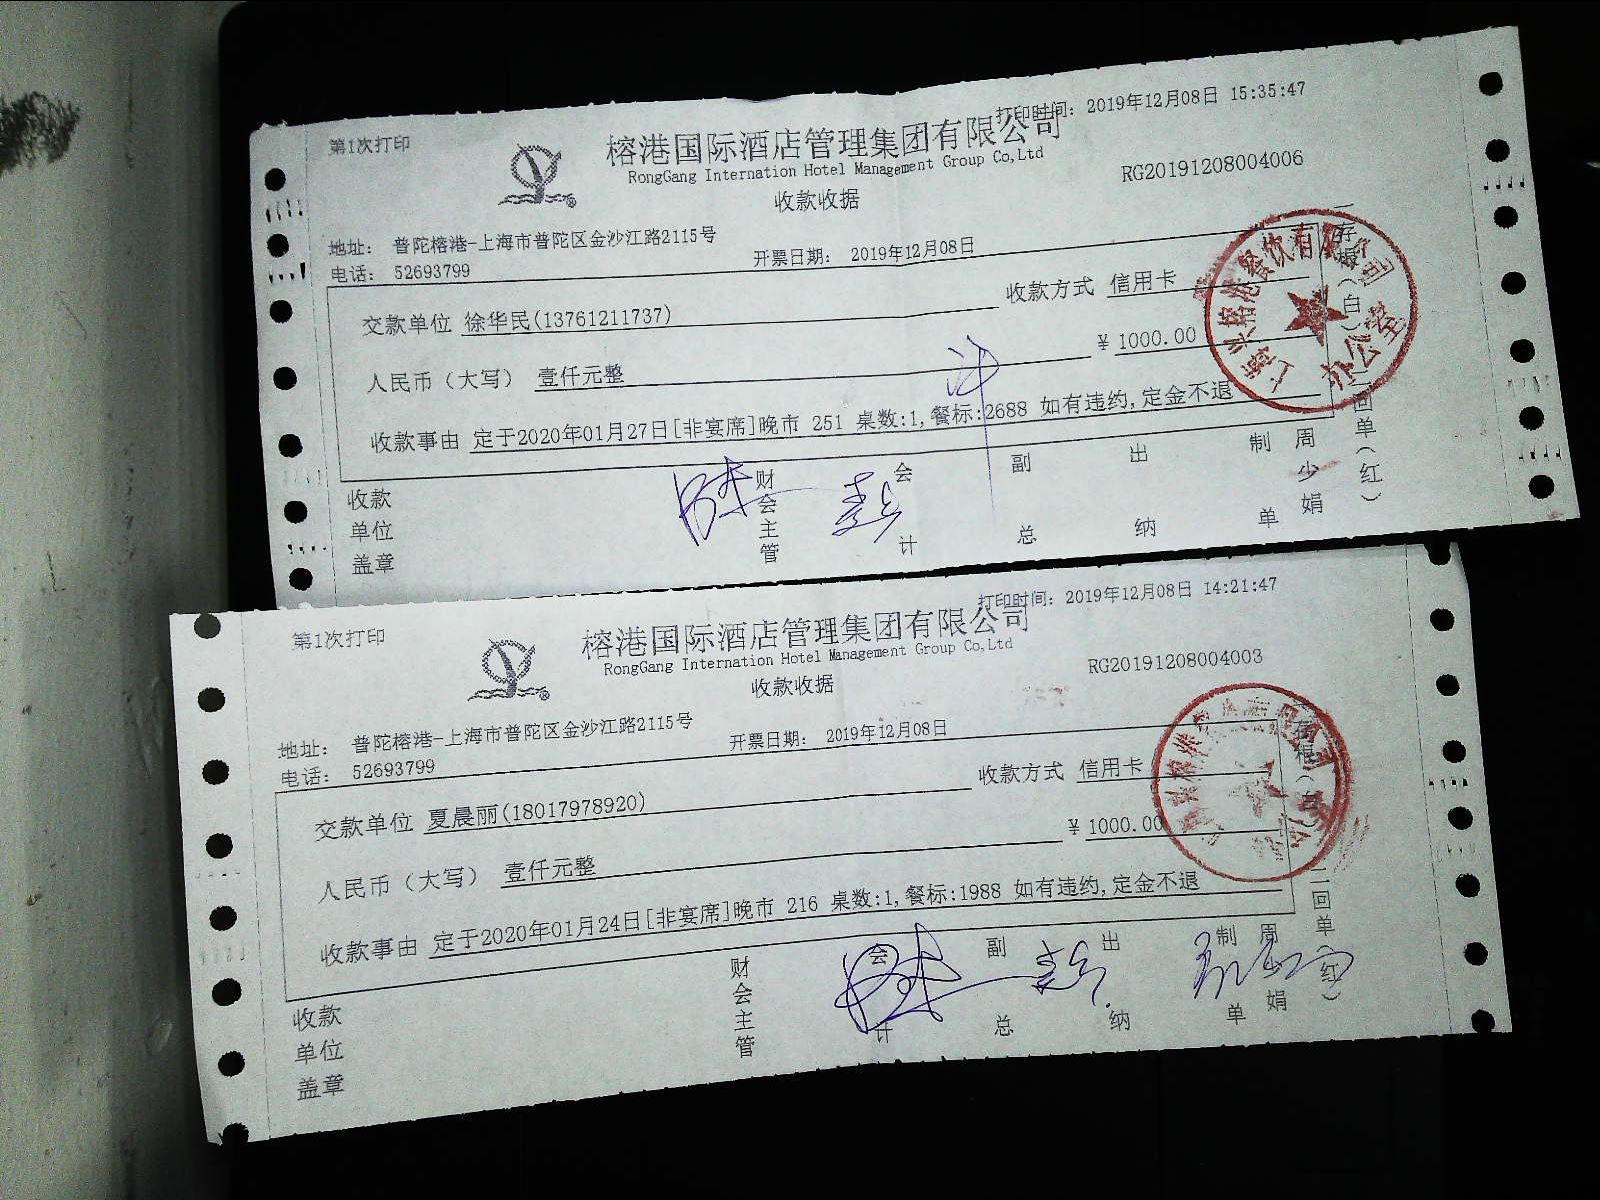 第1次打印
打印时间: 2019年12月08日 15:35:47
榕港国际酒店管理集团有限公司
RongGang Internation Hotel Management Group Co,Ltd
RG20191208004006
收款收据
地址: 普陀榕港-上海市普陀区金沙江路2115号
电话: 52693799
开票日期: 2019年12月08日
交款单位 徐华民(13761211737)
收款方式 信用卡
人民币（大写） 壹仟元整
¥ 1000.00
收款事由 定于2020年01月27日[非宴席]晚市 251 桌数:1,餐标:2688 如有违约,定金不退
收款单位盖章
财会主管
会计
副总
出纳
制单
周少娟
一存根（白）二回单（红）
榕港餐饮有限公司
办公室
第1次打印
打印时间: 2019年12月08日 14:21:47
榕港国际酒店管理集团有限公司
RongGang Internation Hotel Management Group Co,Ltd
RG20191208004003
收款收据
地址: 普陀榕港-上海市普陀区金沙江路2115号
电话: 52693799
开票日期: 2019年12月08日
交款单位 夏晨丽(18017978920)
收款方式 信用卡
人民币（大写） 壹仟元整
¥ 1000.00
收款事由 定于2020年01月24日[非宴席]晚市 216 桌数:1,餐标:1988 如有违约,定金不退
收款单位盖章
财会主管
会计
副总
出纳
制单
周 娟
存根（白）二回单（红）